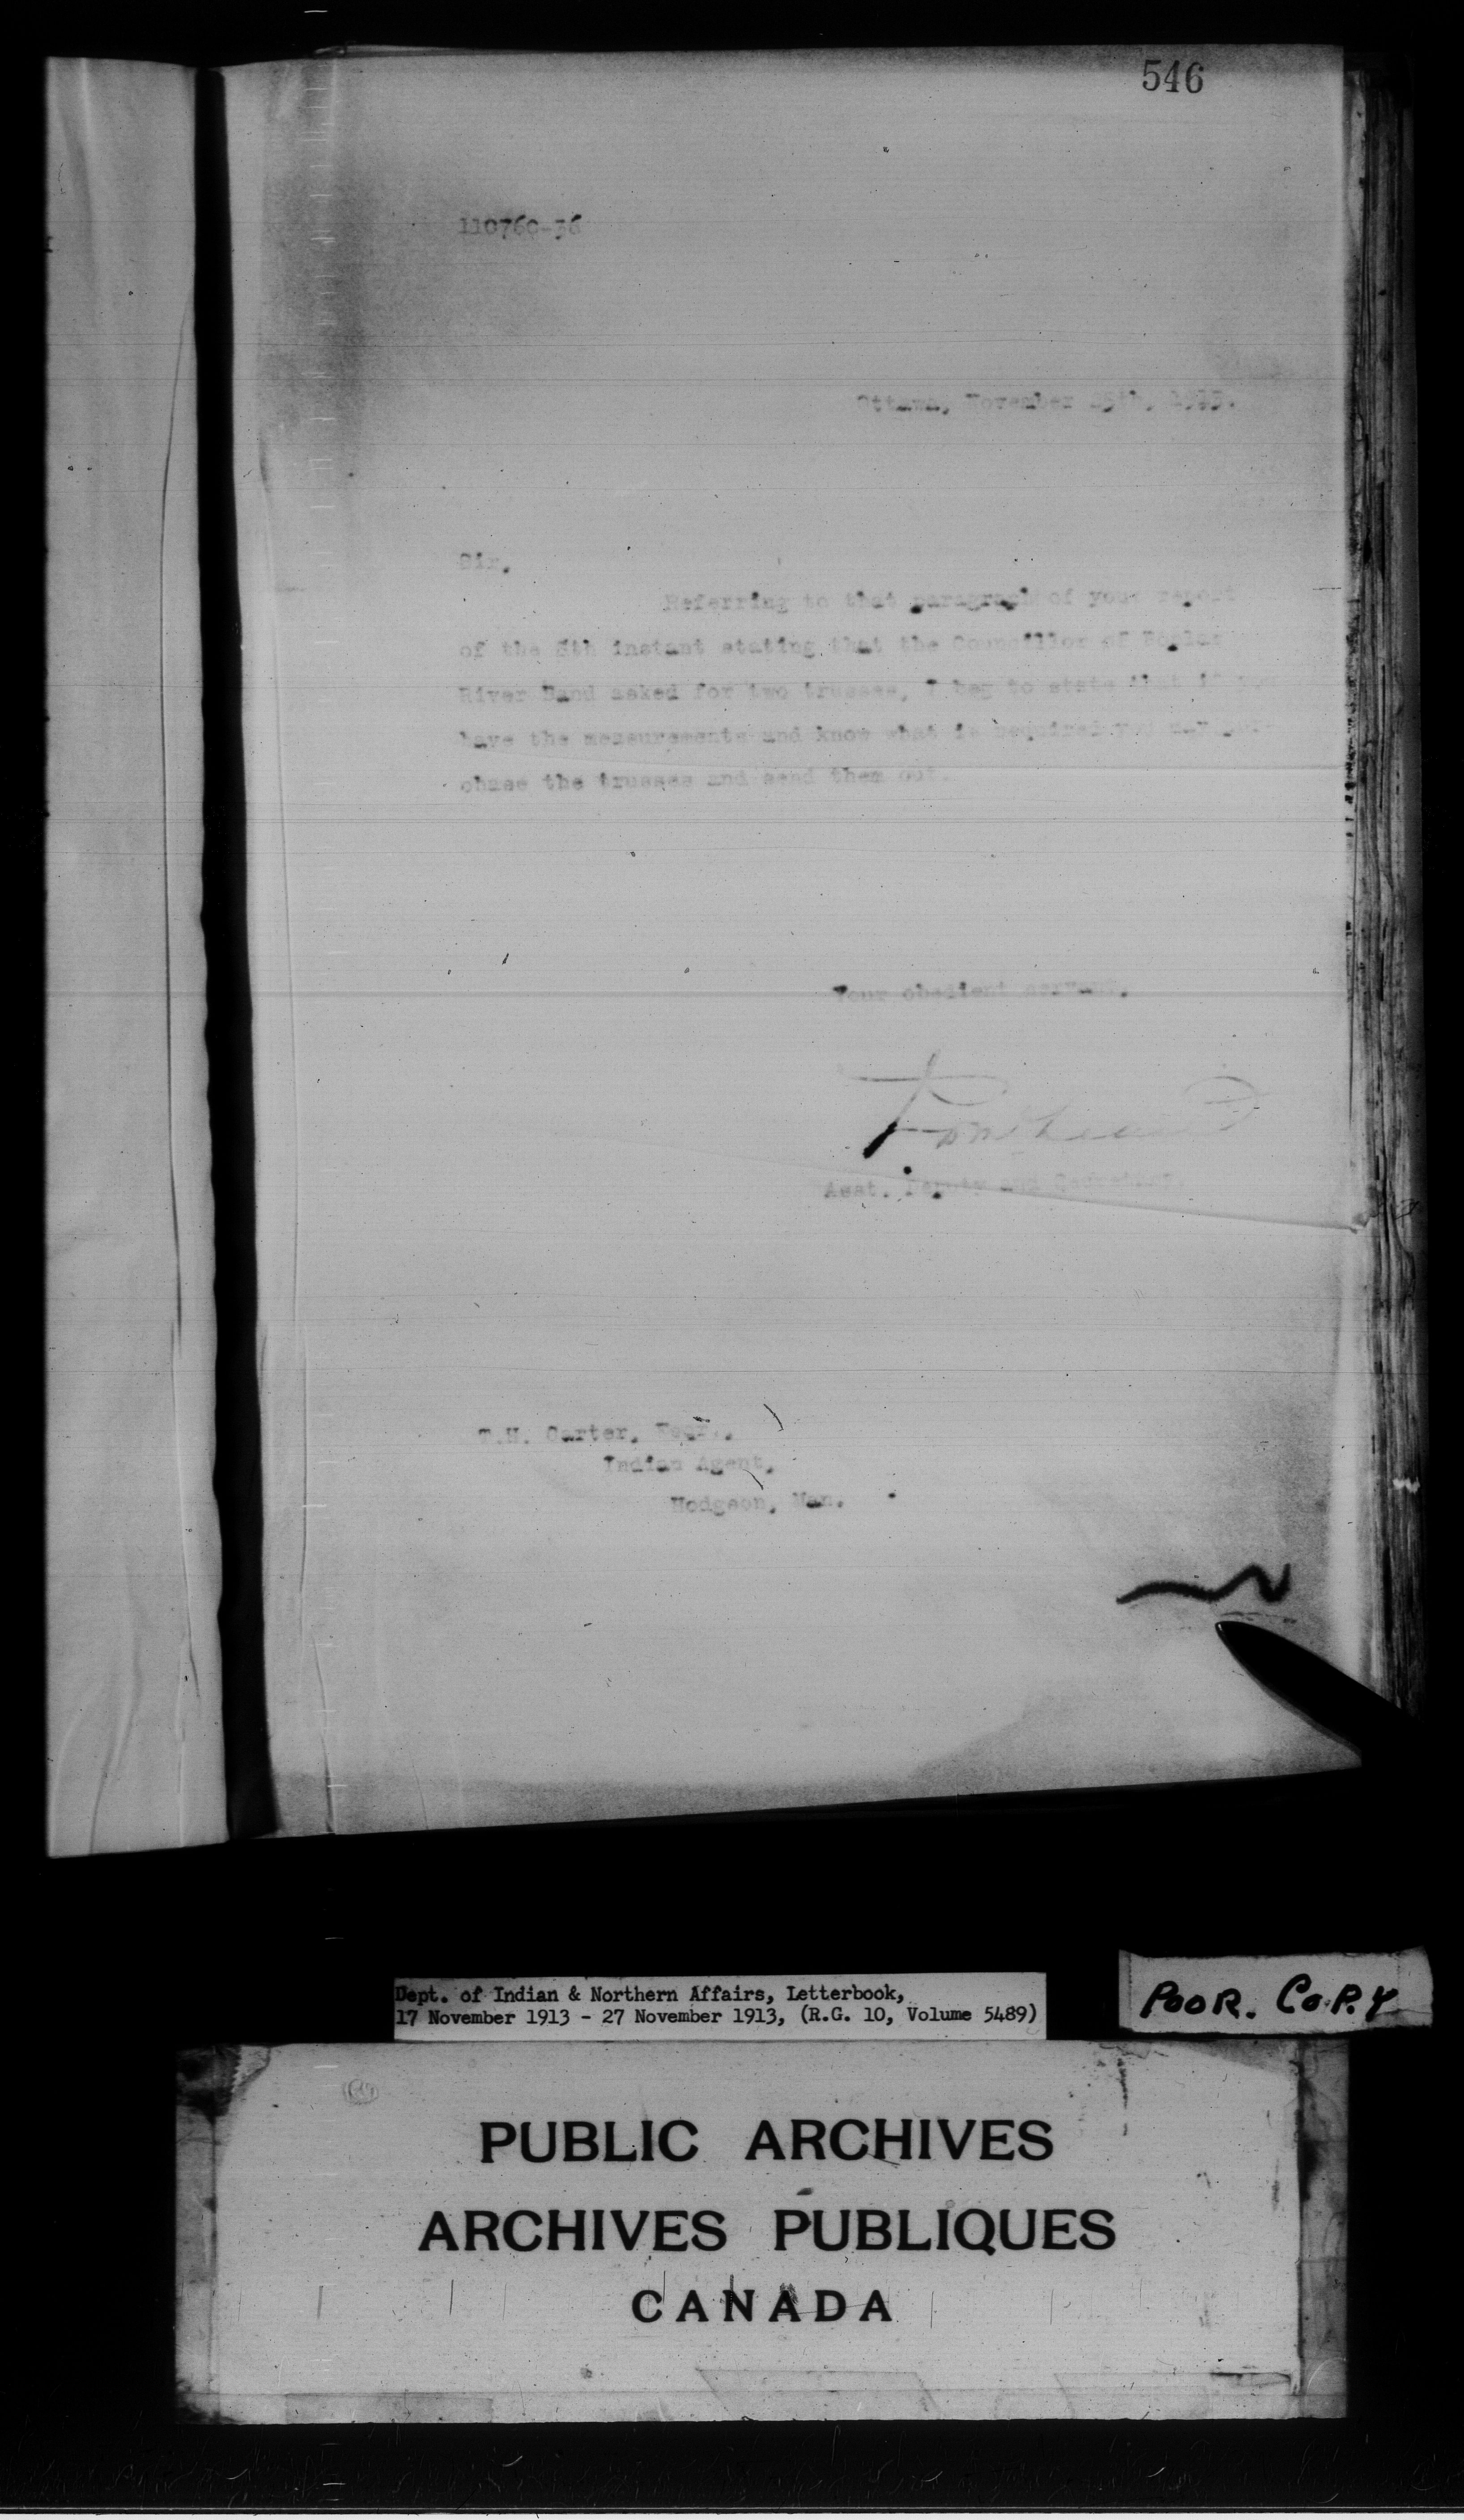 546
110760-36
Ottawa, November 25th, 1913.
Sir,
Referring to that paragraph of your report
of the 8th instant stating that the Councillor of Poplar
River Band asked for two trusses, I beg to state that if you
have the measurements and know what is required you may pur-
chase the trusses and send them out.
Your obedient servant,
Asst. Deputy and Secretary.
T.H. Carter, Esqr.,
Indian Agent,
Hodgson, Man.
Dept. of Indian & Northern Affairs, Letterbook,
17 November 1913 - 27 November 1913, (R.G. 10, Volume 5489)
POOR. COPY
PUBLIC ARCHIVES
ARCHIVES PUBLIQUES
CANADA